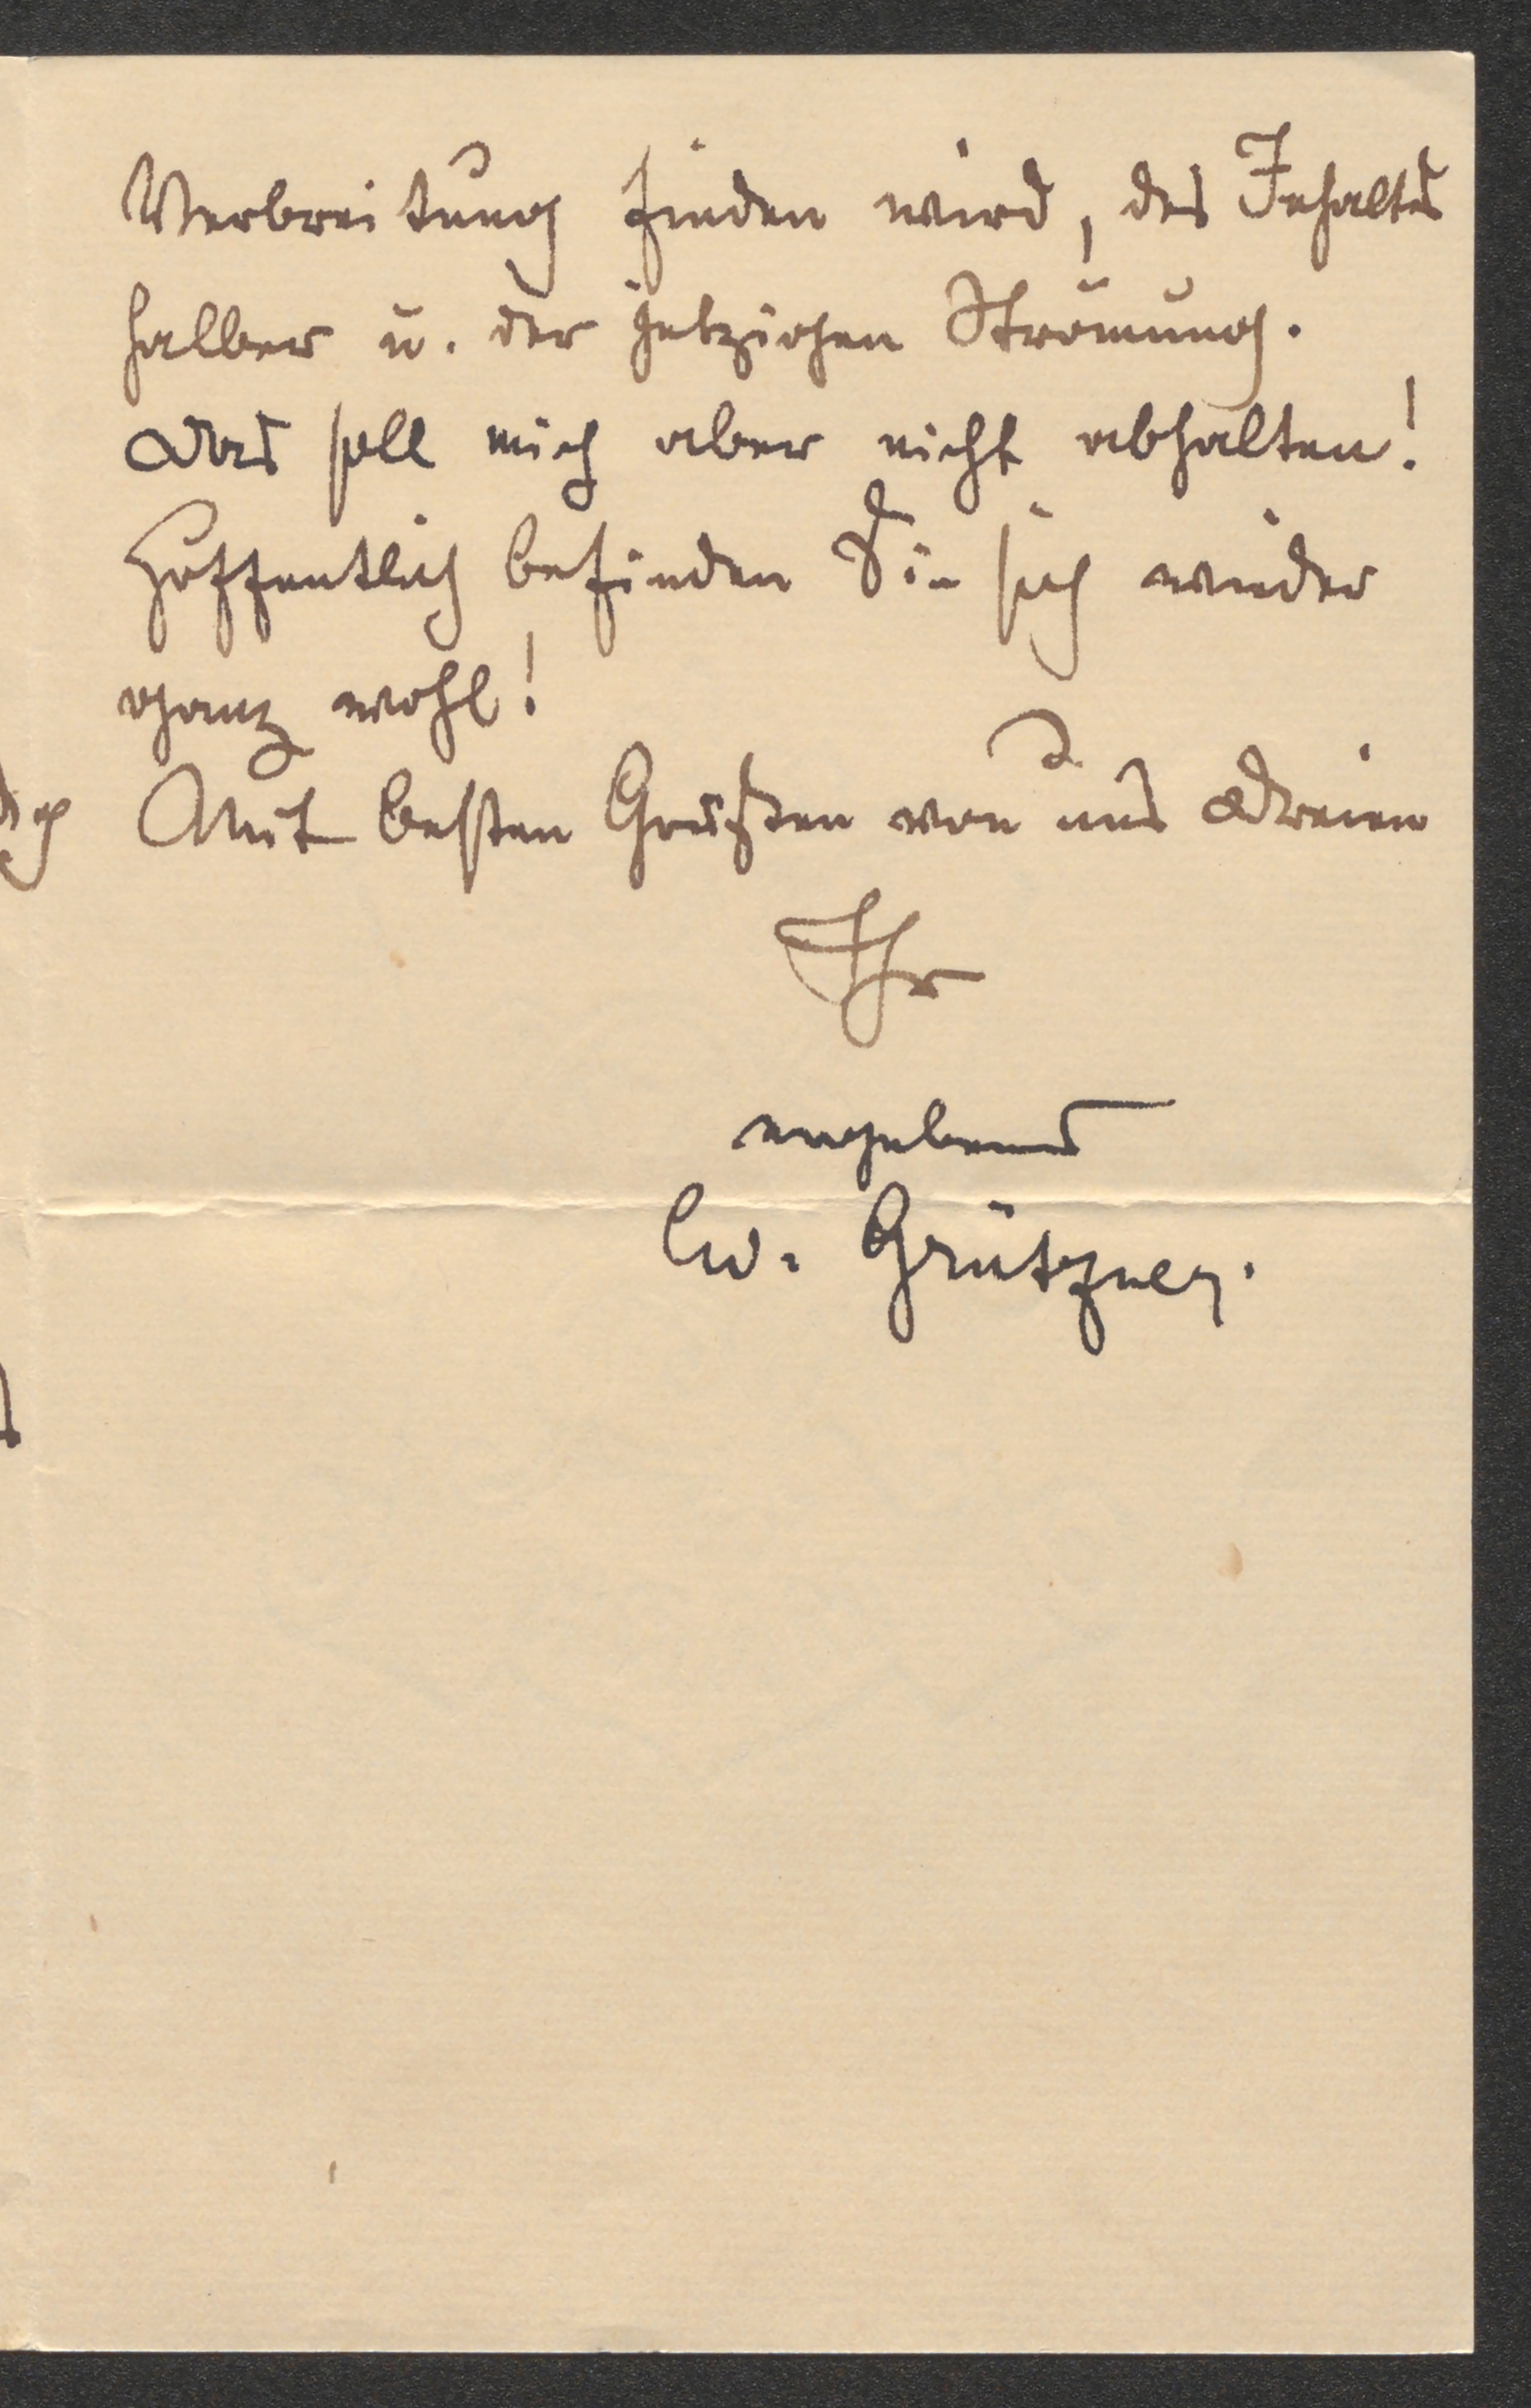 Verbreitung finden wird, des Inhaltes
halber u. der jetzigen Strömung.
Das soll mich aber nicht abhalten!
Hoffentlich befinden Sie sich wieder
ganz wohl!
Mit besten Grüßen von uns Dreien
Ihr
ergebener
Grützner.